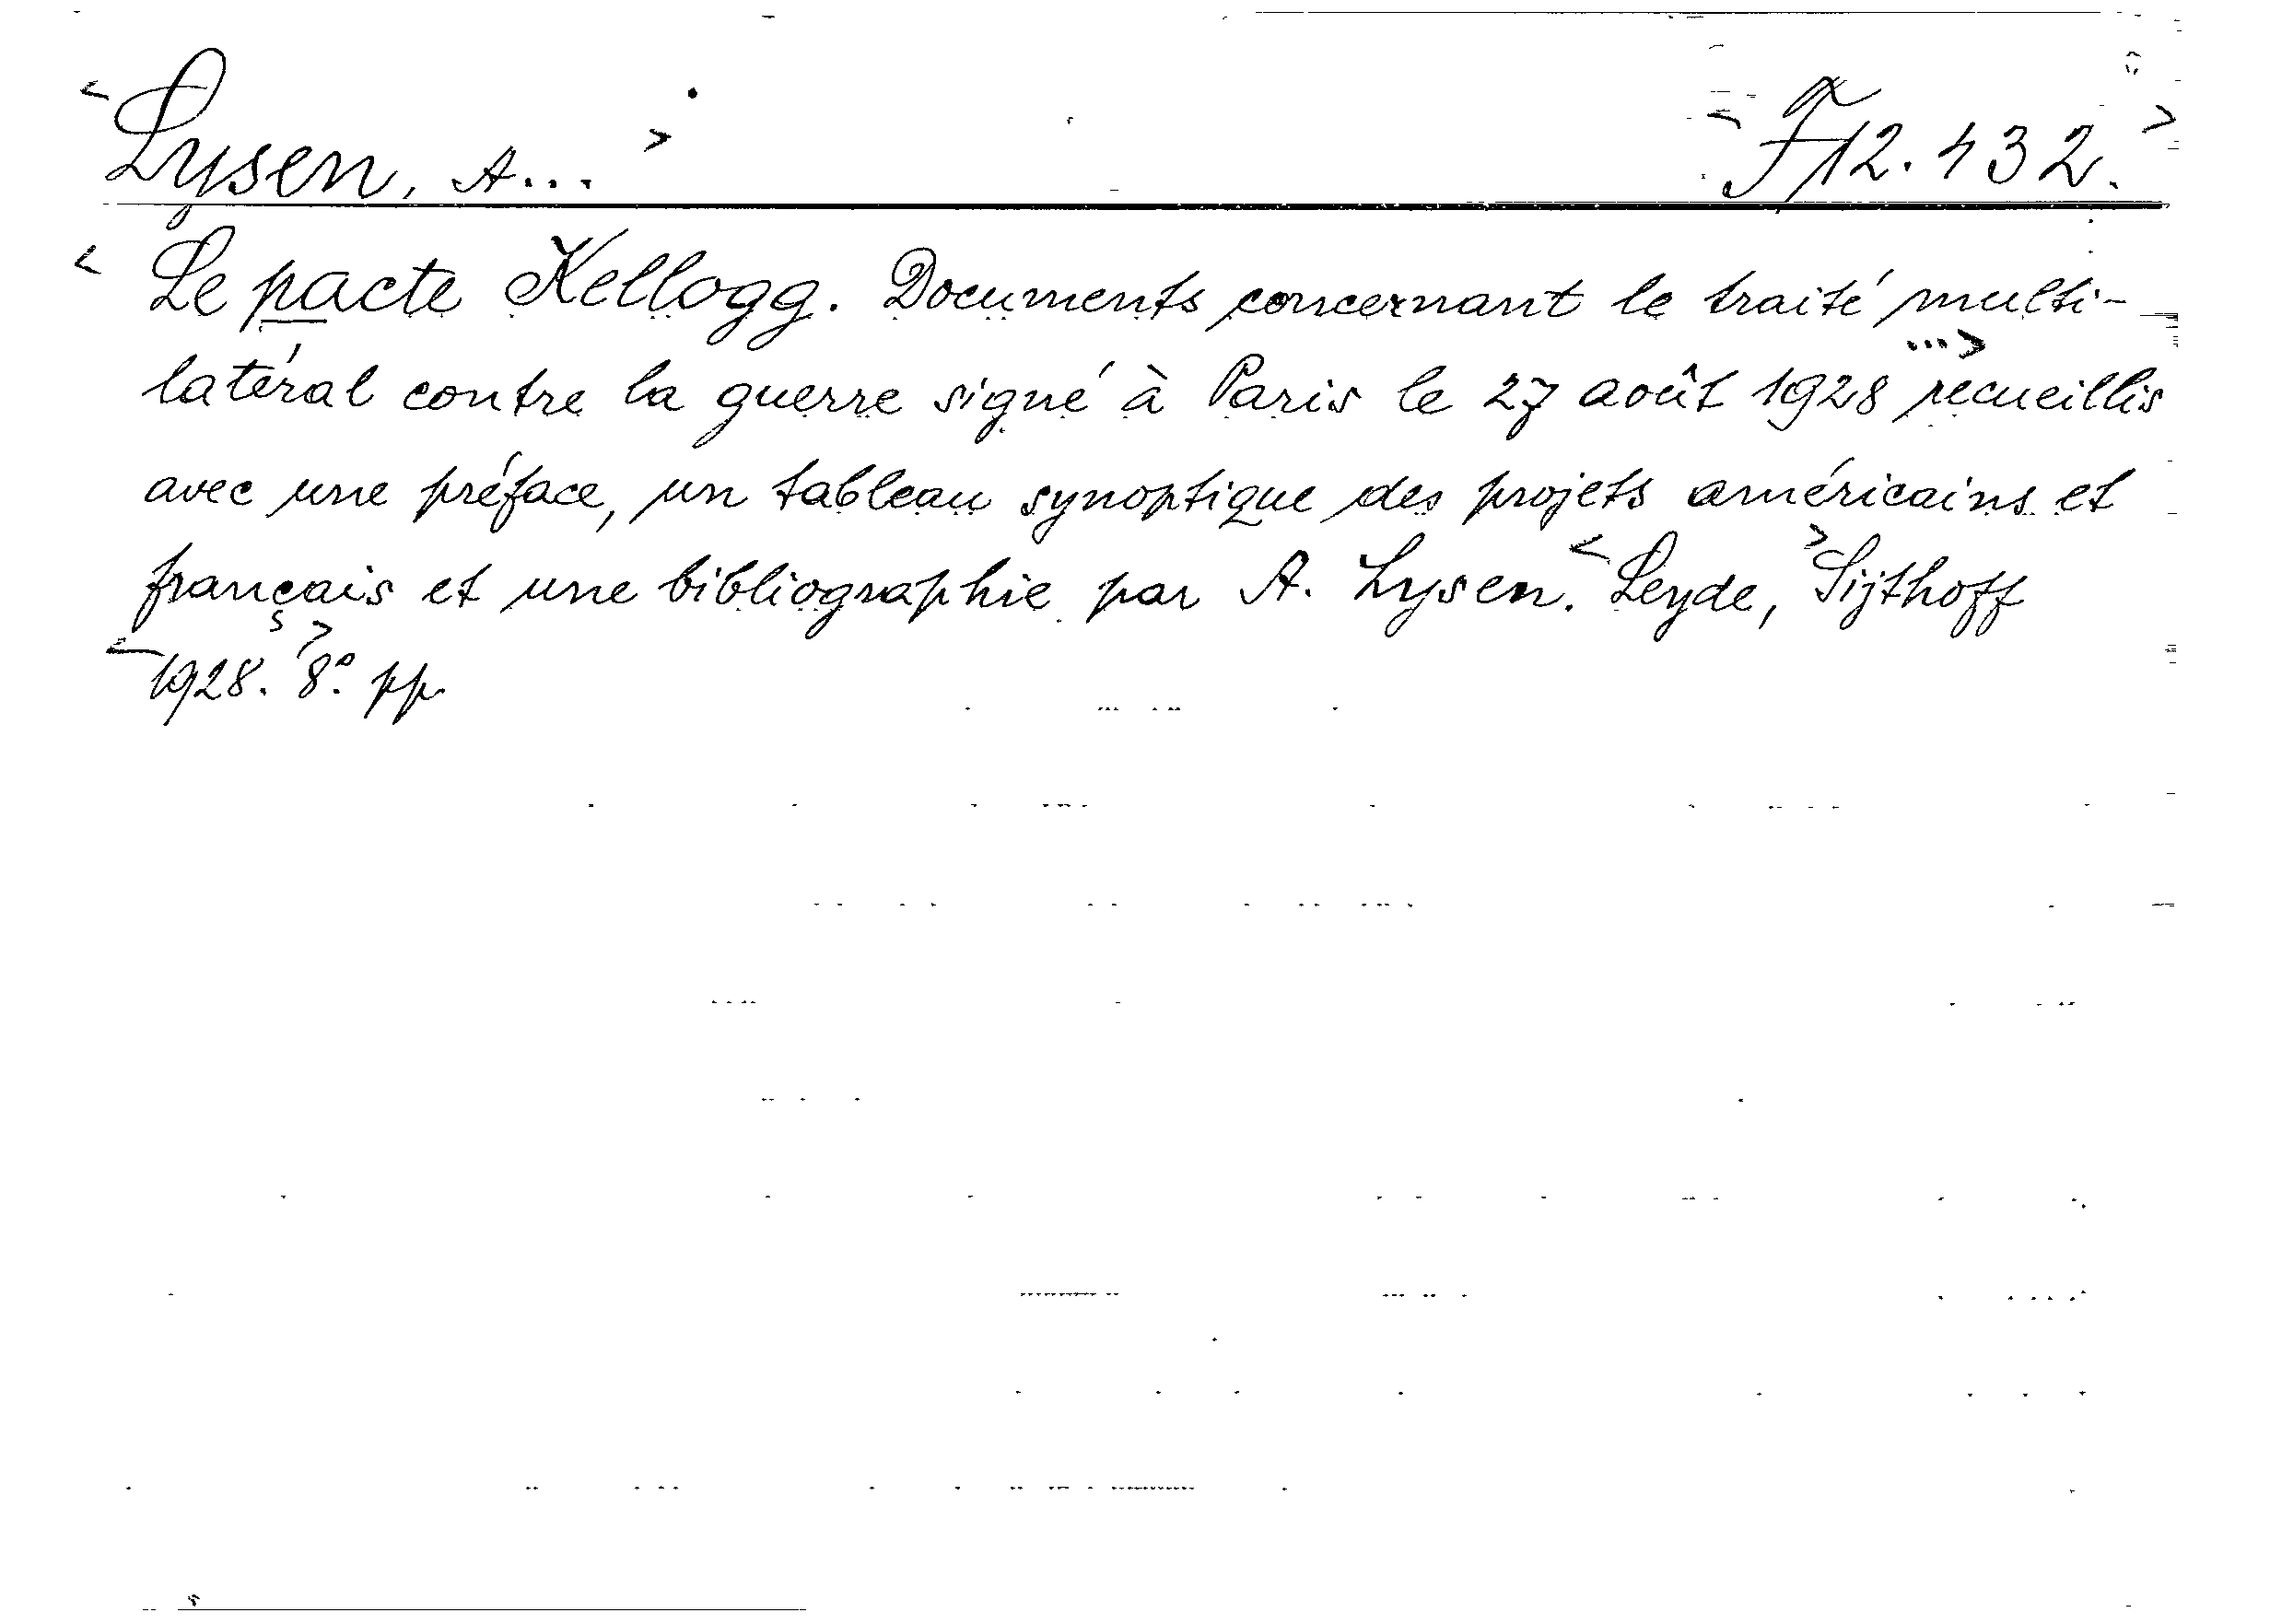 Lysen, A... F 12.432.
Le pacte Kellogg. Documents concernant le traité multi-
latéral contre la guerre signé à Paris le 27 août 1928 recueillis
avec une préface, un tableau synoptique des projets américains et
français et une bibliographie par A. Lysen. Leyde, Sijthoff
1928. 8° pp.